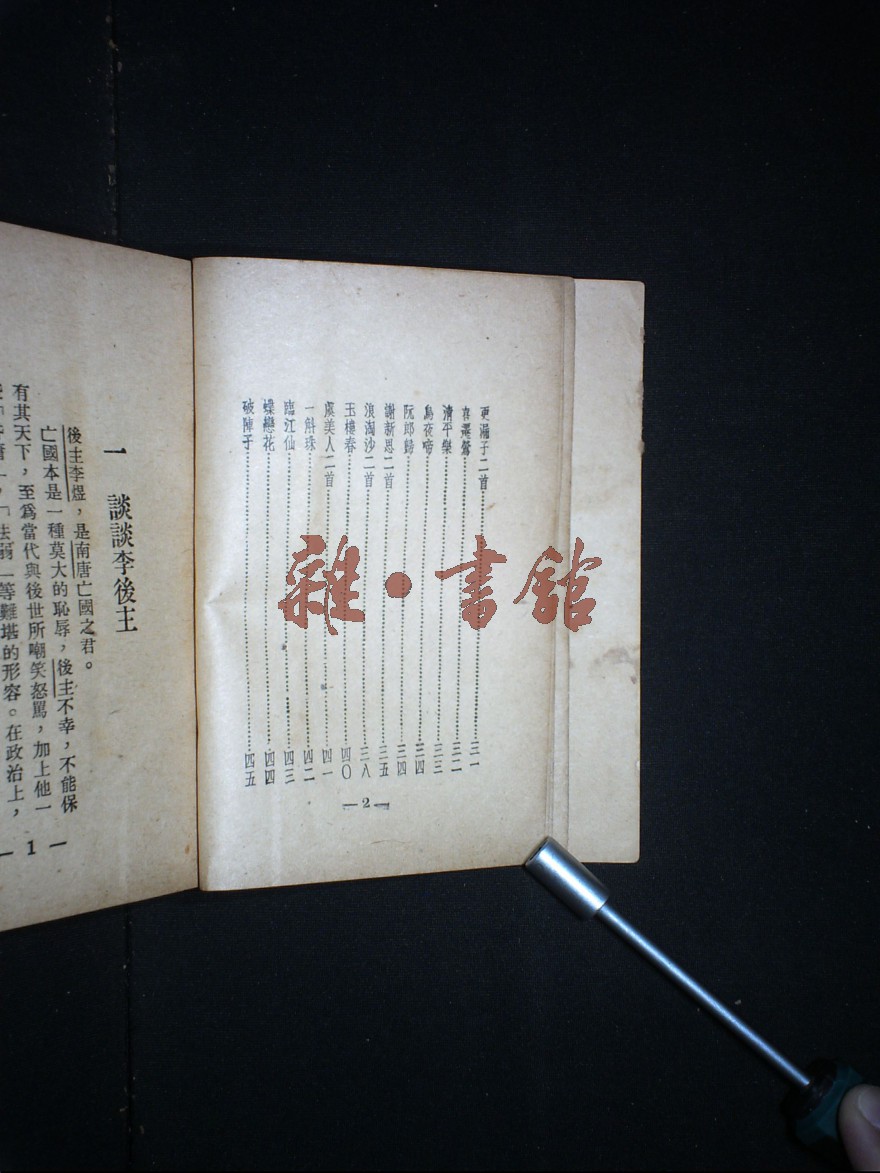 更漏子二首……三一
喜遷鶯……三二
清平樂……三三
烏夜啼……三四
阮郎歸……三四
謝新恩二首……三五
浪淘沙二首……三八
玉樓春……四〇
虞美人二首……四一
一斛珠……四二
臨江仙……四三
蝶戀花……四四
破陣子……四五
—2—
雜·書館
一 談談李後主
後主李煜，是南唐亡國之君。
亡國本是一種莫大的恥辱，後主不幸，不能保
有其天下，至爲當代與後世所嘲笑怒罵，加上他一
等難堪的形容。在政治上，
—1—